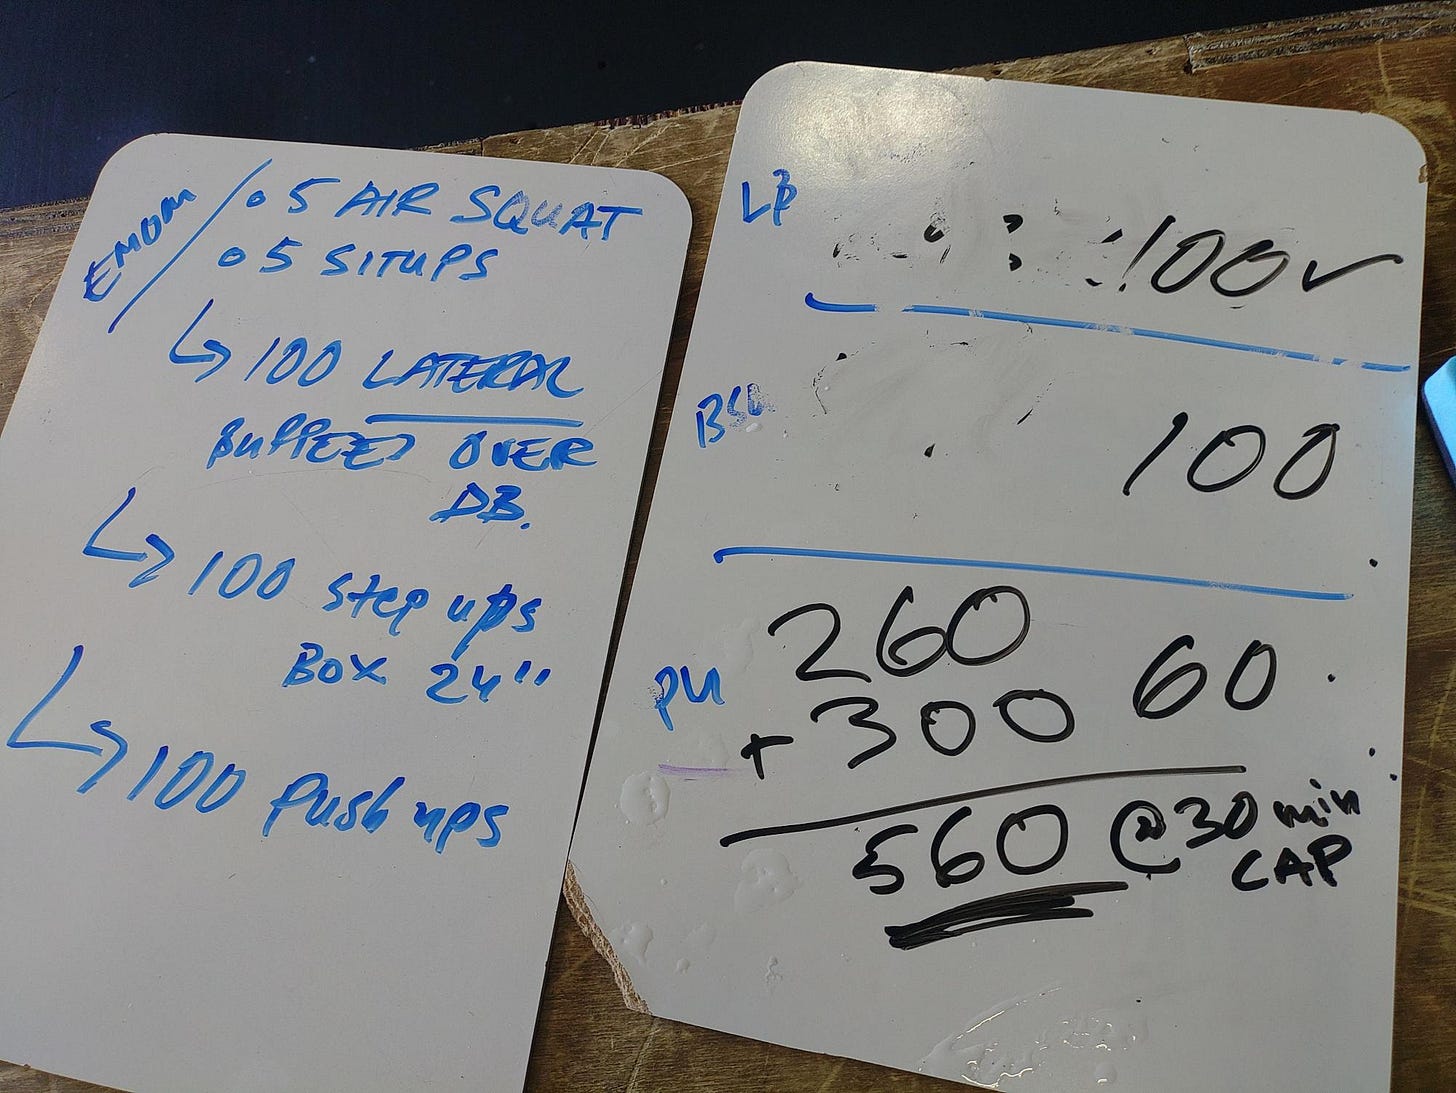 EMOM
• 5 AIR SQUAT
• 5 SITUPS
↳ 100 LATERAL
OVER
DB.
↳ 100 Step ups
BOX 24"
↳ 100 Push ups
100 ✓
100
PU
260
60
+ 300
560 @ 30 min
CAP